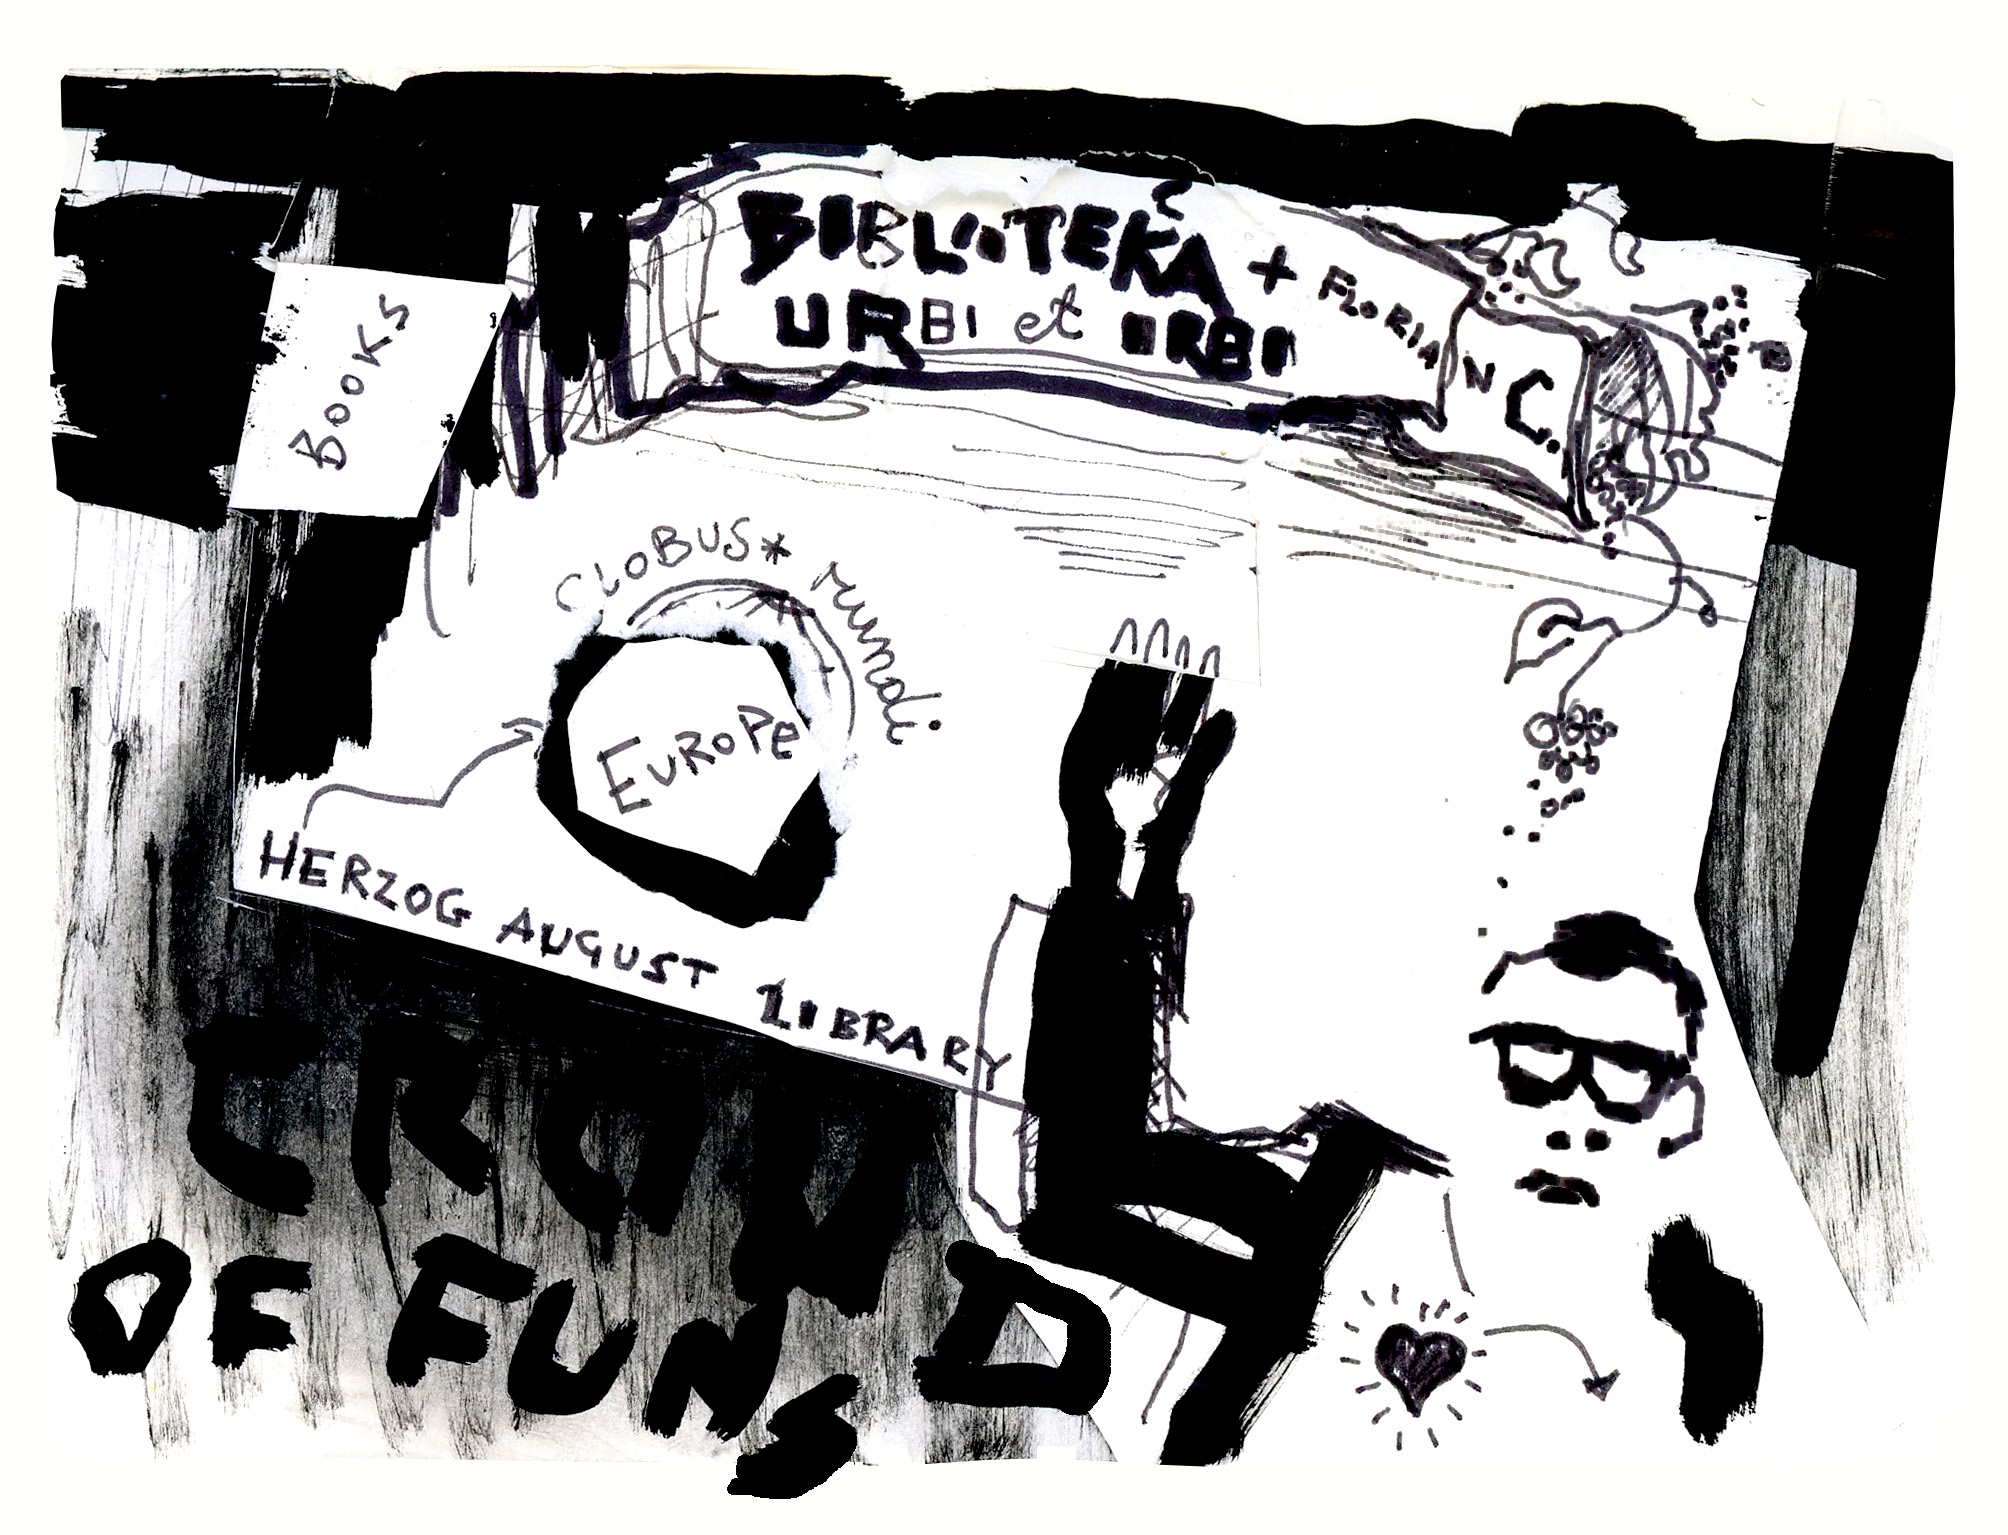 BIBLIOTEKA + FLORIAN C.
URBI et ORBI
BOOKS
GLOBUS* mundi
EUROPE
HERZOG AUGUST LIBRARY
CROWD
OF FUNS